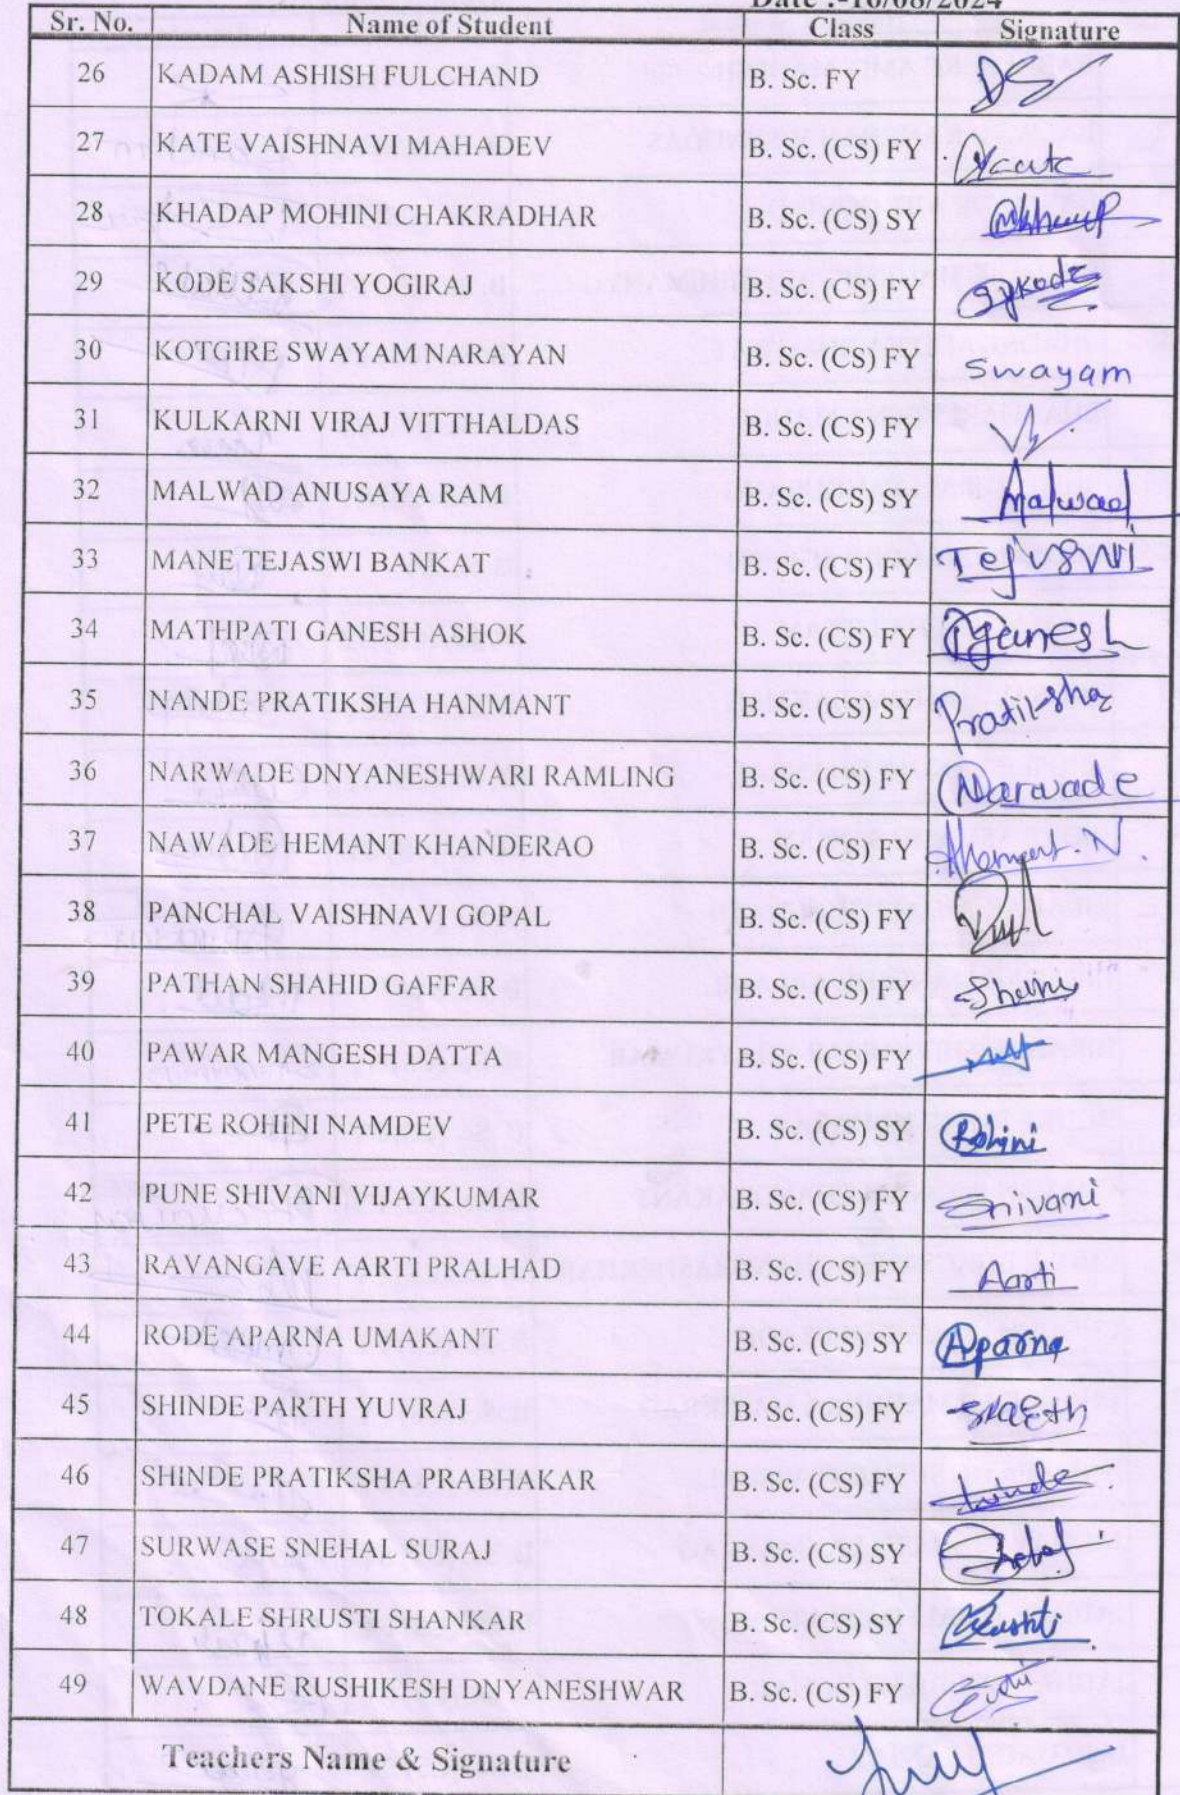 Date :-16/08/2024
Sr. No. Name of Student Class Signature
26 KADAM ASHISH FULCHAND B. Sc. FY
27 KATE VAISHNAVI MAHADEV B. Sc. (CS) FY
28 KHADAP MOHINI CHAKRADHAR B. Sc. (CS) SY
29 KODE SAKSHI YOGIRAJ B. Sc. (CS) FY sykode
30 KOTGIRE SWAYAM NARAYAN B. Sc. (CS) FY swayam
31 KULKARNI VIRAJ VITTHALDAS B. Sc. (CS) FY
32 MALWAD ANUSAYA RAM B. Sc. (CS) SY Malwad
33 MANE TEJASWI BANKAT B. Sc. (CS) FY
34 MATHPATI GANESH ASHOK B. Sc. (CS) FY Ganesh
35 NANDE PRATIKSHA HANMANT B. Sc. (CS) SY Pratiksha
36 NARWADE DNYANESHWARI RAMLING B. Sc. (CS) FY Narwade
37 NAWADE HEMANT KHANDERAO B. Sc. (CS) FY Hemant. N.
38 PANCHAL VAISHNAVI GOPAL B. Sc. (CS) FY
39 PATHAN SHAHID GAFFAR B. Sc. (CS) FY
40 PAWAR MANGESH DATTA B. Sc. (CS) FY
41 PETE ROHINI NAMDEV B. Sc. (CS) SY Rohini
42 PUNE SHIVANI VIJAYKUMAR B. Sc. (CS) FY Shivani
43 RAVANGAVE AARTI PRALHAD B. Sc. (CS) FY Aarti
44 RODE APARNA UMAKANT B. Sc. (CS) SY Aparna
45 SHINDE PARTH YUVRAJ B. Sc. (CS) FY
46 SHINDE PRATIKSHA PRABHAKAR B. Sc. (CS) FY
47 SURWASE SNEHAL SURAJ B. Sc. (CS) SY
48 TOKALE SHRUSTI SHANKAR B. Sc. (CS) SY
49 WAVDANE RUSHIKESH DNYANESHWAR B. Sc. (CS) FY
Teachers Name & Signature